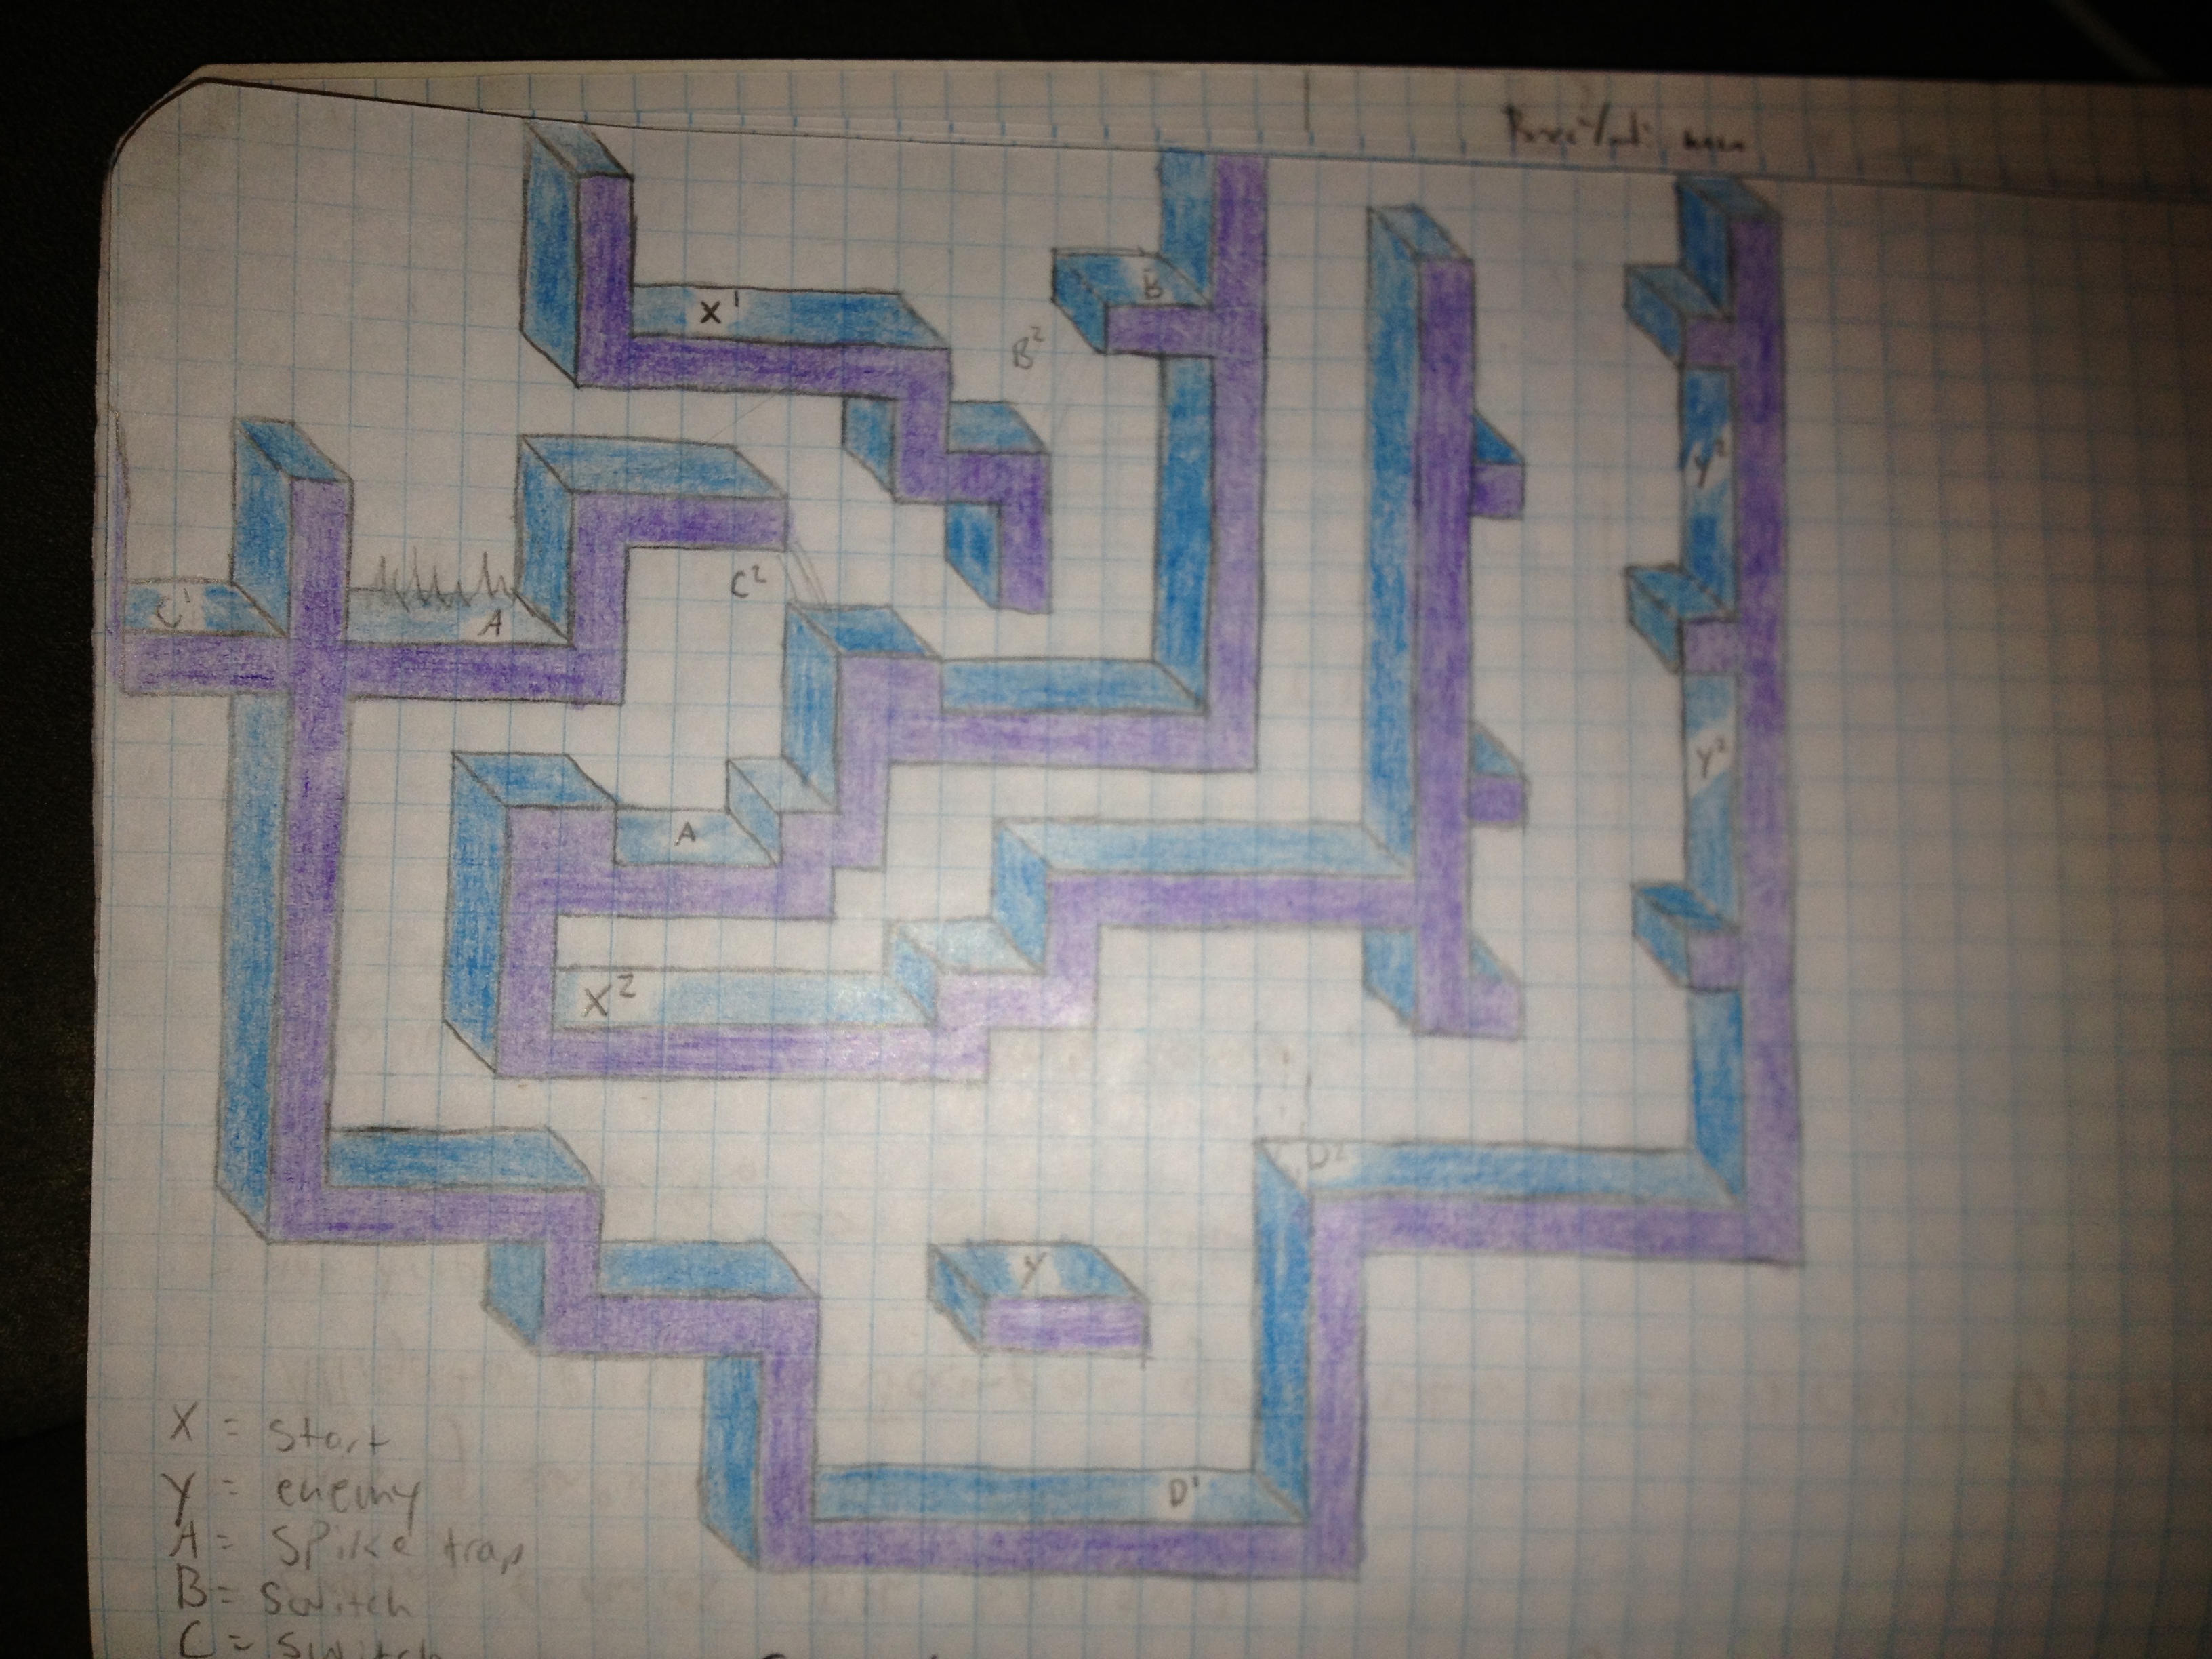 X¹
B
B²
Y²
C²
C¹
A
Y²
A
X²
D²
Y
D¹
X = Start
Y = enemy
A = Spike trap
B = Switch
C = Switch